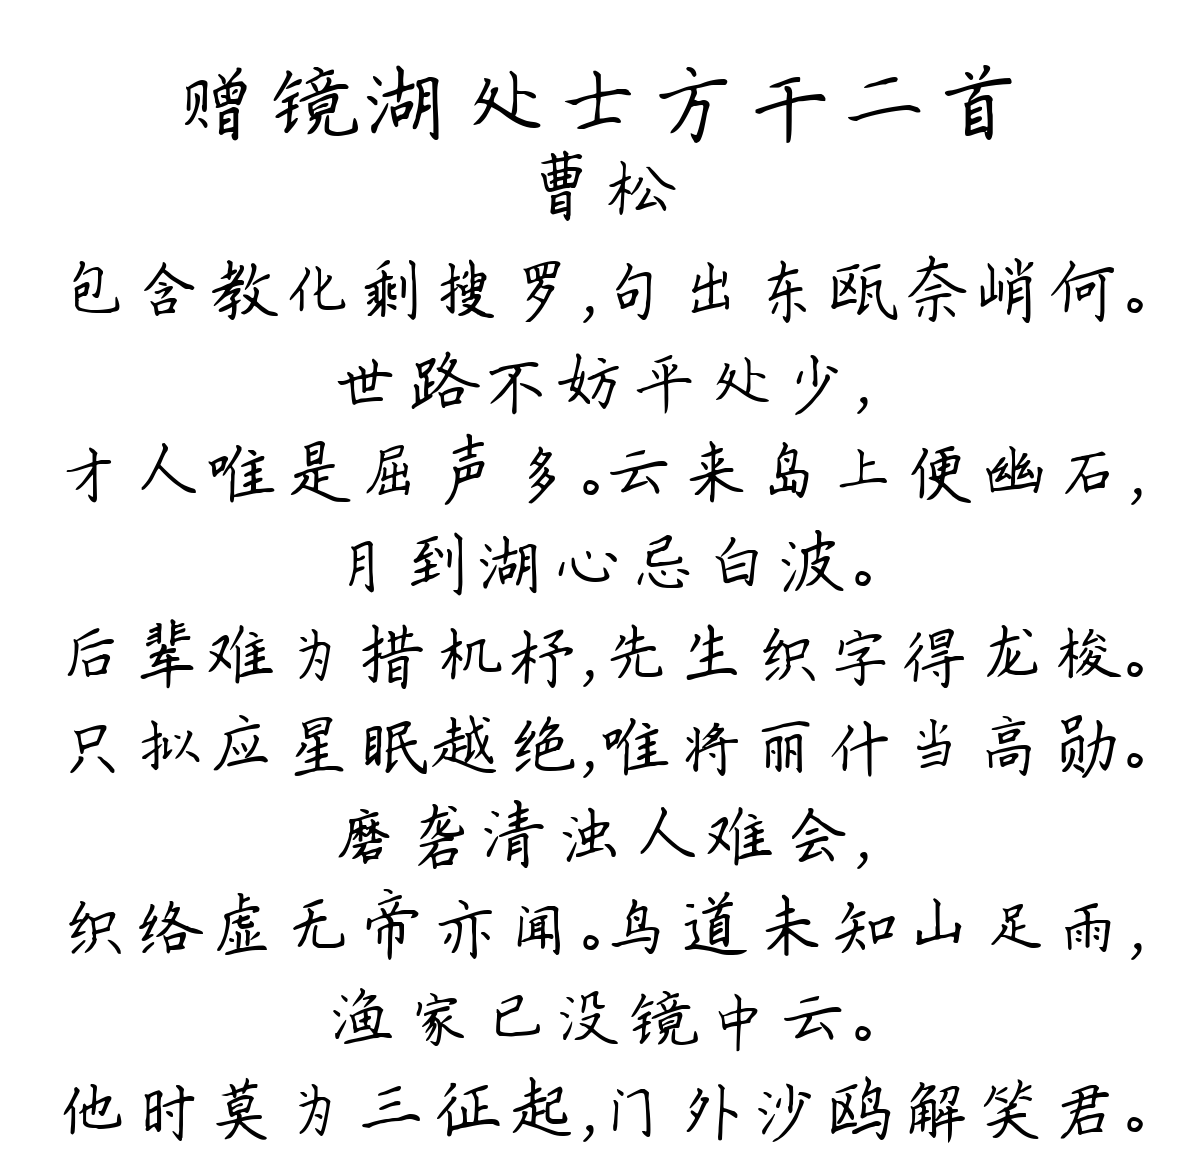 赠镜湖处士方干二首
曹松
包含教化剩搜罗,句出东瓯奈峭何。
世路不妨平处少,
才人唯是屈声多。云来岛上便幽石,
月到湖心忌白波。
后辈难为措机杼,先生织字得龙梭。
只拟应星眠越绝,唯将丽什当高勋。
磨砻清浊人难会,
织络虚无帝亦闻。鸟道未知山足雨,
渔家已没镜中云。
他时莫为三征起,门外沙鸥解笑君。